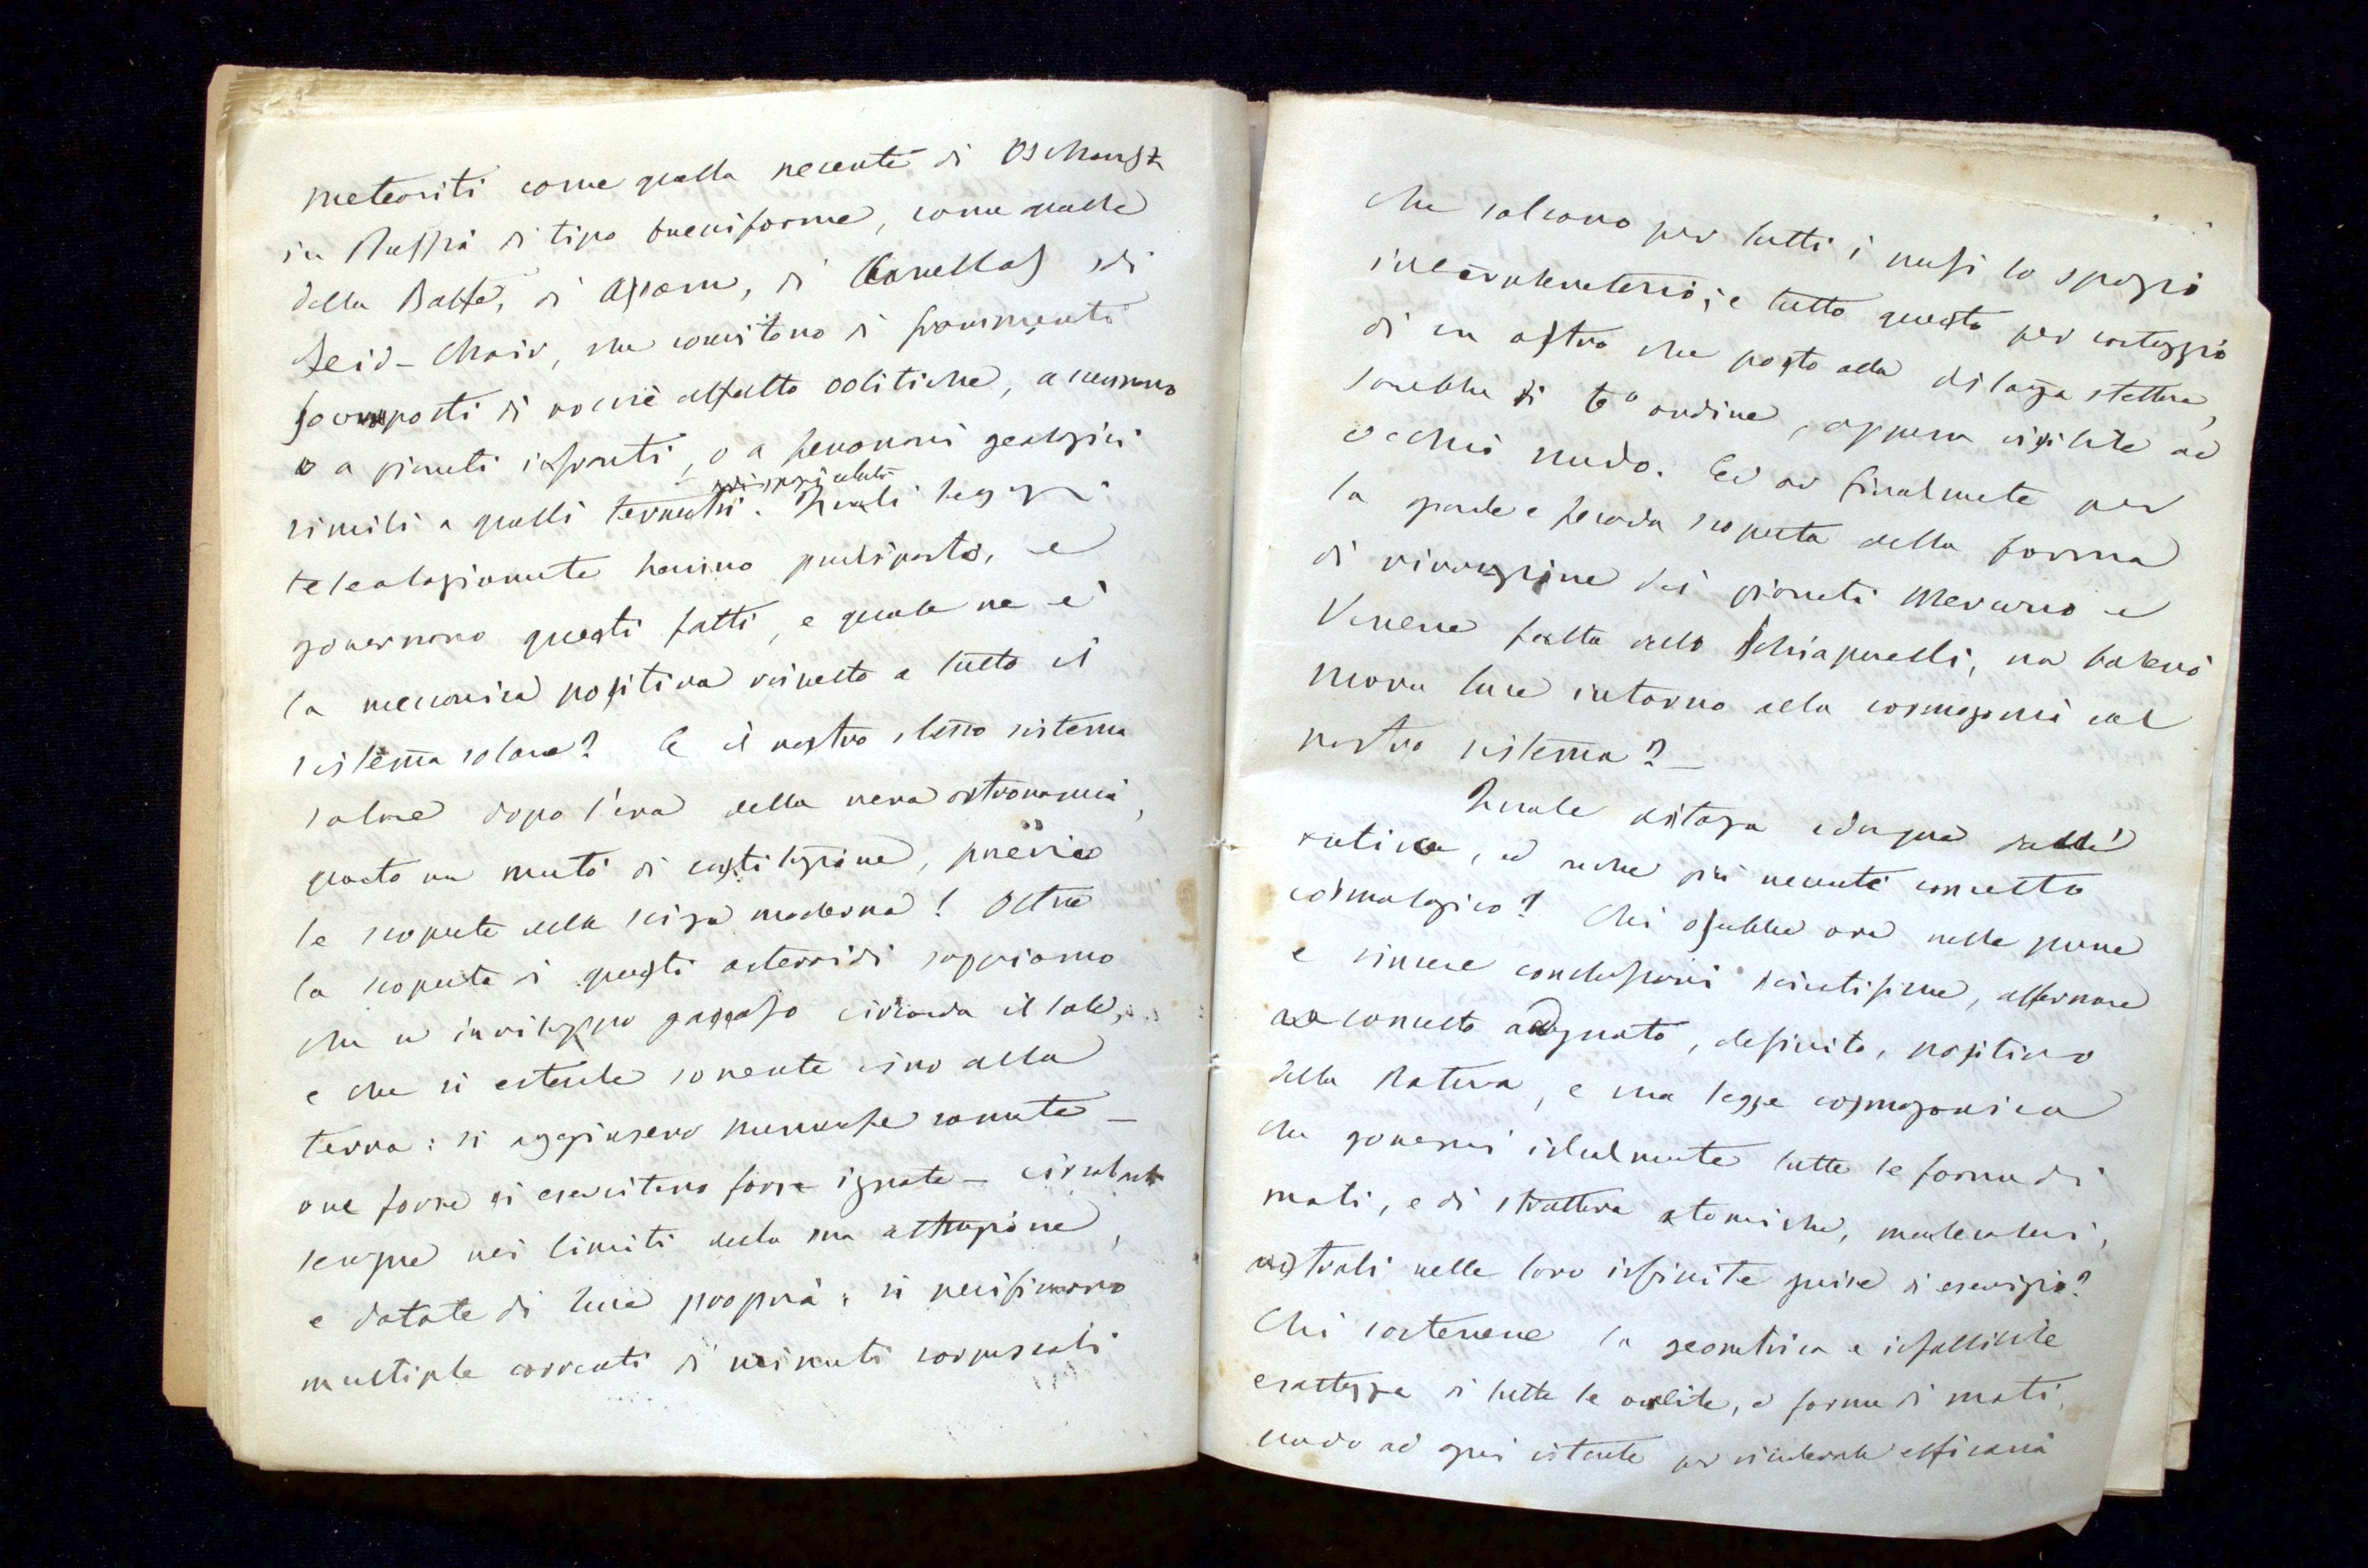 meteoriti come quella recente di Oschansk
in Russia di tipo breciforme, come quelle
della Balfe, di Assam, di Canellas di
Seid-Chair, che consistono di frammenti
composti di roccie affatto oolitiche, accennano
o a pianeti infranti, o a fenomeni geologici
simili a quelli terrestri. Quali leggi
teleologicamente hanno predisposto, e
governano questi fatti, e quale ne è
la meccanica positiva rispetto a tutto il
sistema solare? E il nostro stesso sistema
solare dopo l'era della vera astronomia,
quanto non mutò di costituzione, previe
le scoperte della scienza moderna! Oltre
la scoperta di questi asteroidi sappiamo
che un inviluppo gassoso circonda il sole,
e che si estende sovente sino alla
terra: si aggiunsero numerose comete —
ove forse si esercitano forze ignote —
sempre nei limiti della sua attrazione,
e dotate di luce propria: si verificarono
multiple correnti di minuti corpuscoli
che solcano per tutti i versi lo spazio
interplanetario; e tutto questo per corteggio
di un astro che posto alla distanza stellare,
sarebbe di 6° ordine, appena visibile ad
occhio nudo. Ed or finalmente per
la grande e feconda scoperta della forma
di rivoluzione dei pianeti Mercurio e
Venere fatta dallo Schiaparelli, non balenò
nuova luce intorno alla cosmogonia del
nostro sistema? —
Quale distanza adunque dall'
antico, ed anche più recente concetto
cosmologico! Chi oserebbe ora nelle pure
e sincere conclusioni scientifiche, affermare
un concetto adeguato, definito, positivo
della Natura, e una legge cosmogonica
che governi idealmente tutte le forme di
moti, e di struttura atomiche, molecolari,
astrali nelle loro infinite guise di esercizio?
Chi sostenere la geometrica e infallibile
esattezza di tutte le orbite, e forme di moti,
quando ad ogni istante per vicendevole efficacia